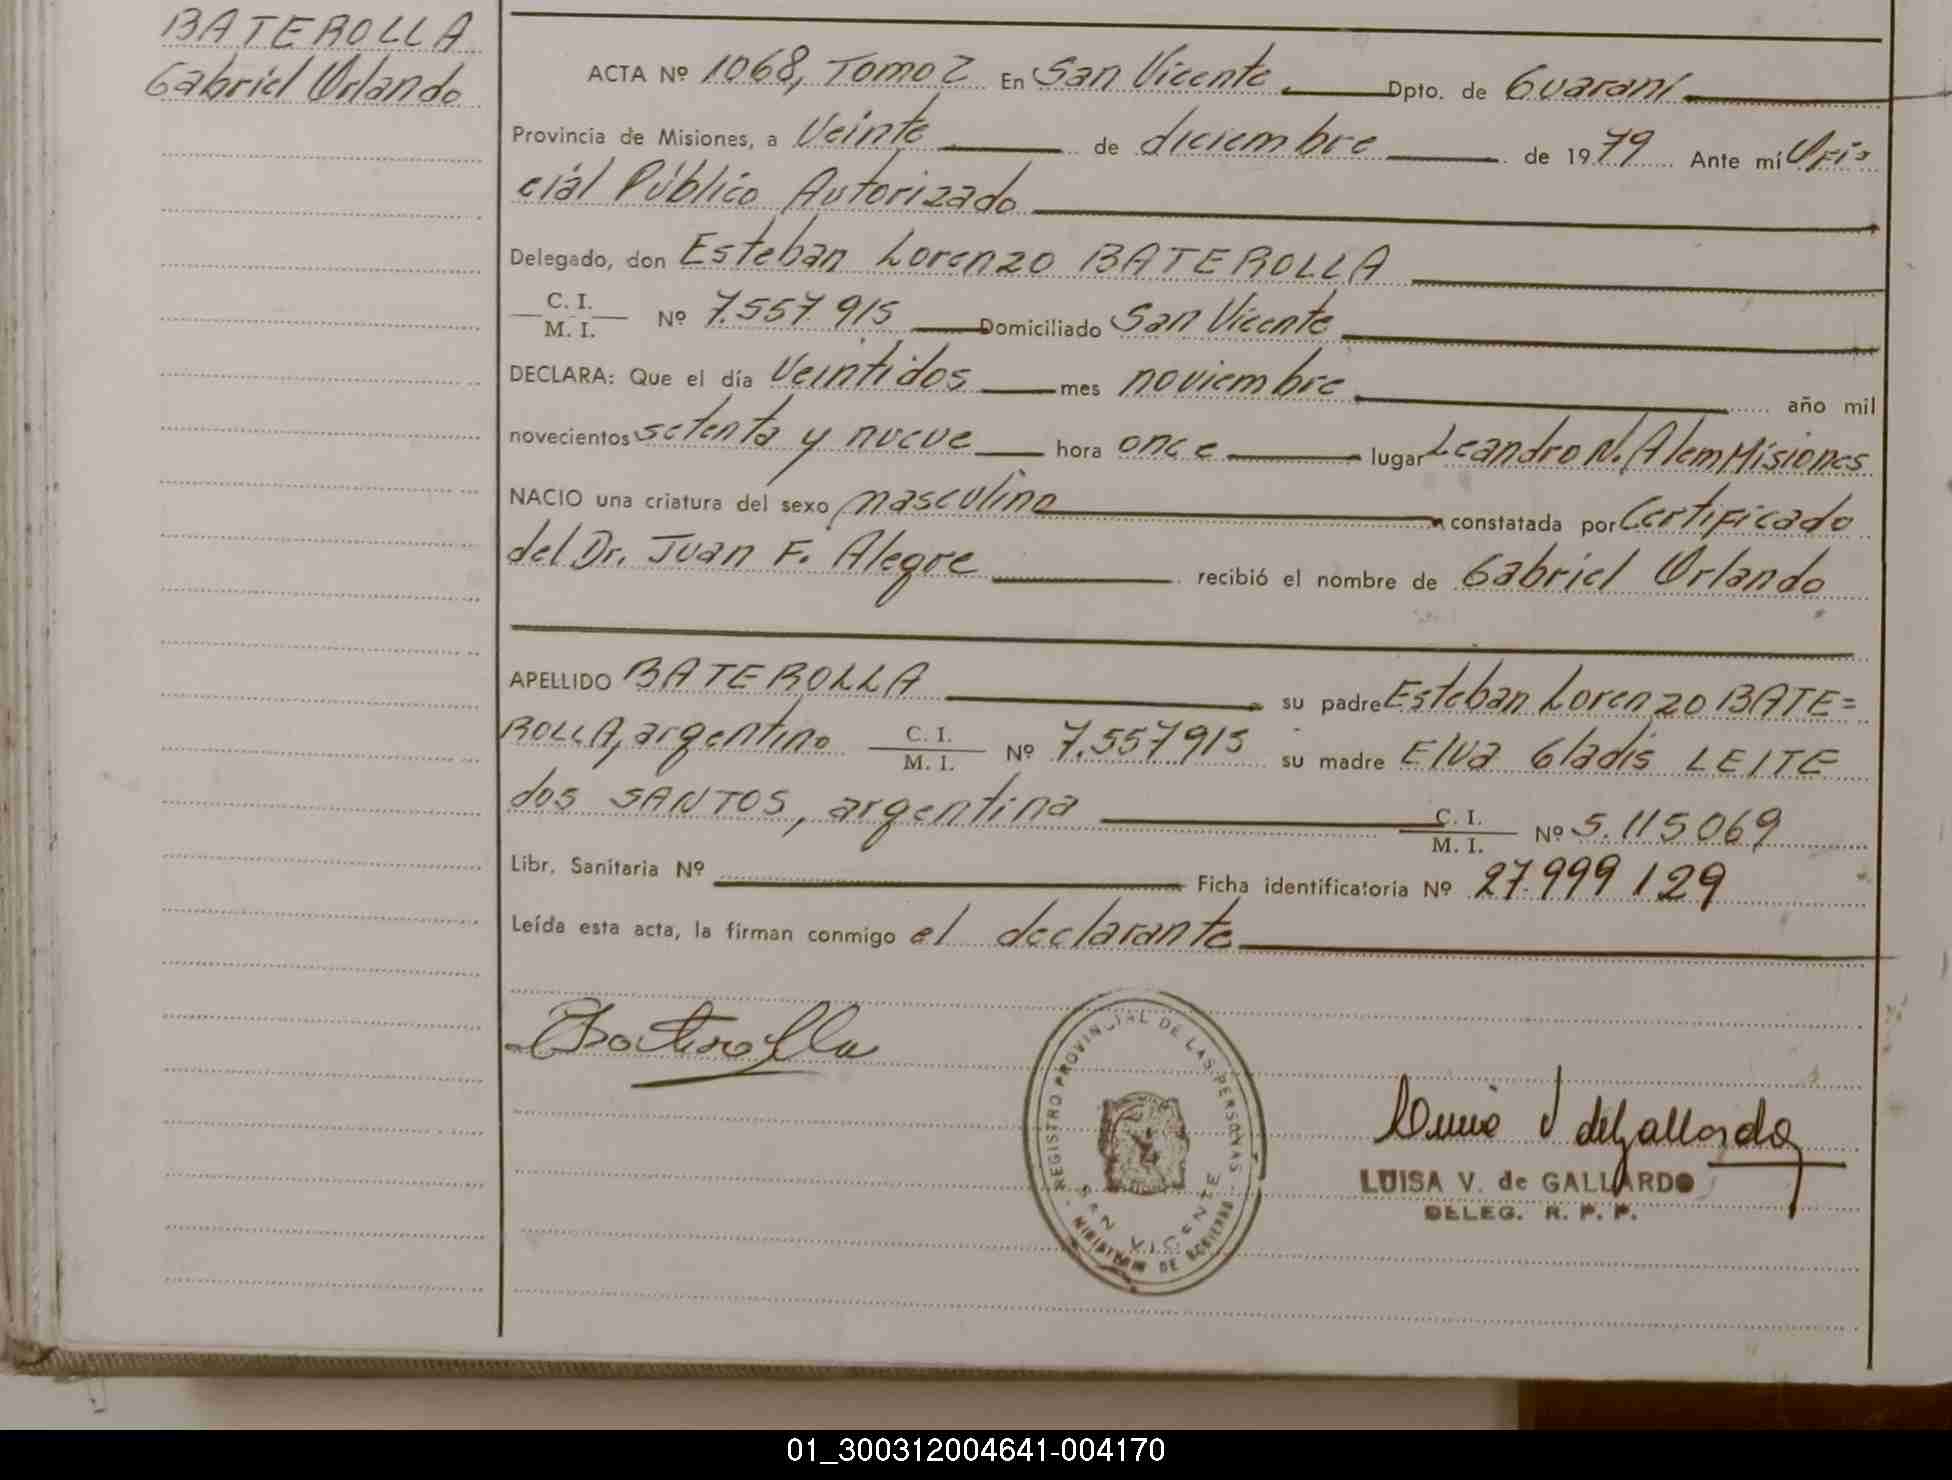 BATEROLLA
Gabriel Orlando
ACTA Nº 1068, Tomo 2 En San Vicente Dpto. de Guaraní
Provincia de Misiones, a Veinte de diciembre de 1979 Ante mí Ofi=
cial Público Autorizado
Delegado, don Esteban Lorenzo BATEROLLA
C. I.
M. I. Nº 7.557915 Domiciliado San Vicente
DECLARA: Que el día Veintidos mes noviembre año mil
novecientos setenta y nueve hora once lugar Leandro N. Alem Misiones
NACIO una criatura del sexo masculino constatada por Certificado
del Dr. Juan F. Alegre recibió el nombre de Gabriel Orlando
APELLIDO BATEROLLA su padre Esteban Lorenzo BATE=
ROLLA, argentino C. I. M. I. Nº 7.557915 su madre Elva Gladis LEITE
dos SANTOS, argentina C. I. M. I. Nº 5.115069
Libr. Sanitaria Nº Ficha identificatoria Nº 27.999129
Leída esta acta, la firman conmigo el declarante
EBaterolla
REGISTRO PROVINCIAL DE LAS PERSONAS
SAN VICENTE
MINISTERIO DE GOBIERNO
Luisa V de Gallardo
LUISA V. de GALLARDO
DELEG. R. P. P.
01_300312004641-004170